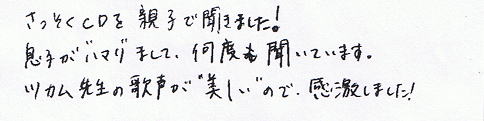 さっそくCDを親子で聞きました!
息子が"ハマり"まして、何度も聞いています。
ツカム先生の歌声が"美しい"ので、感激しました!